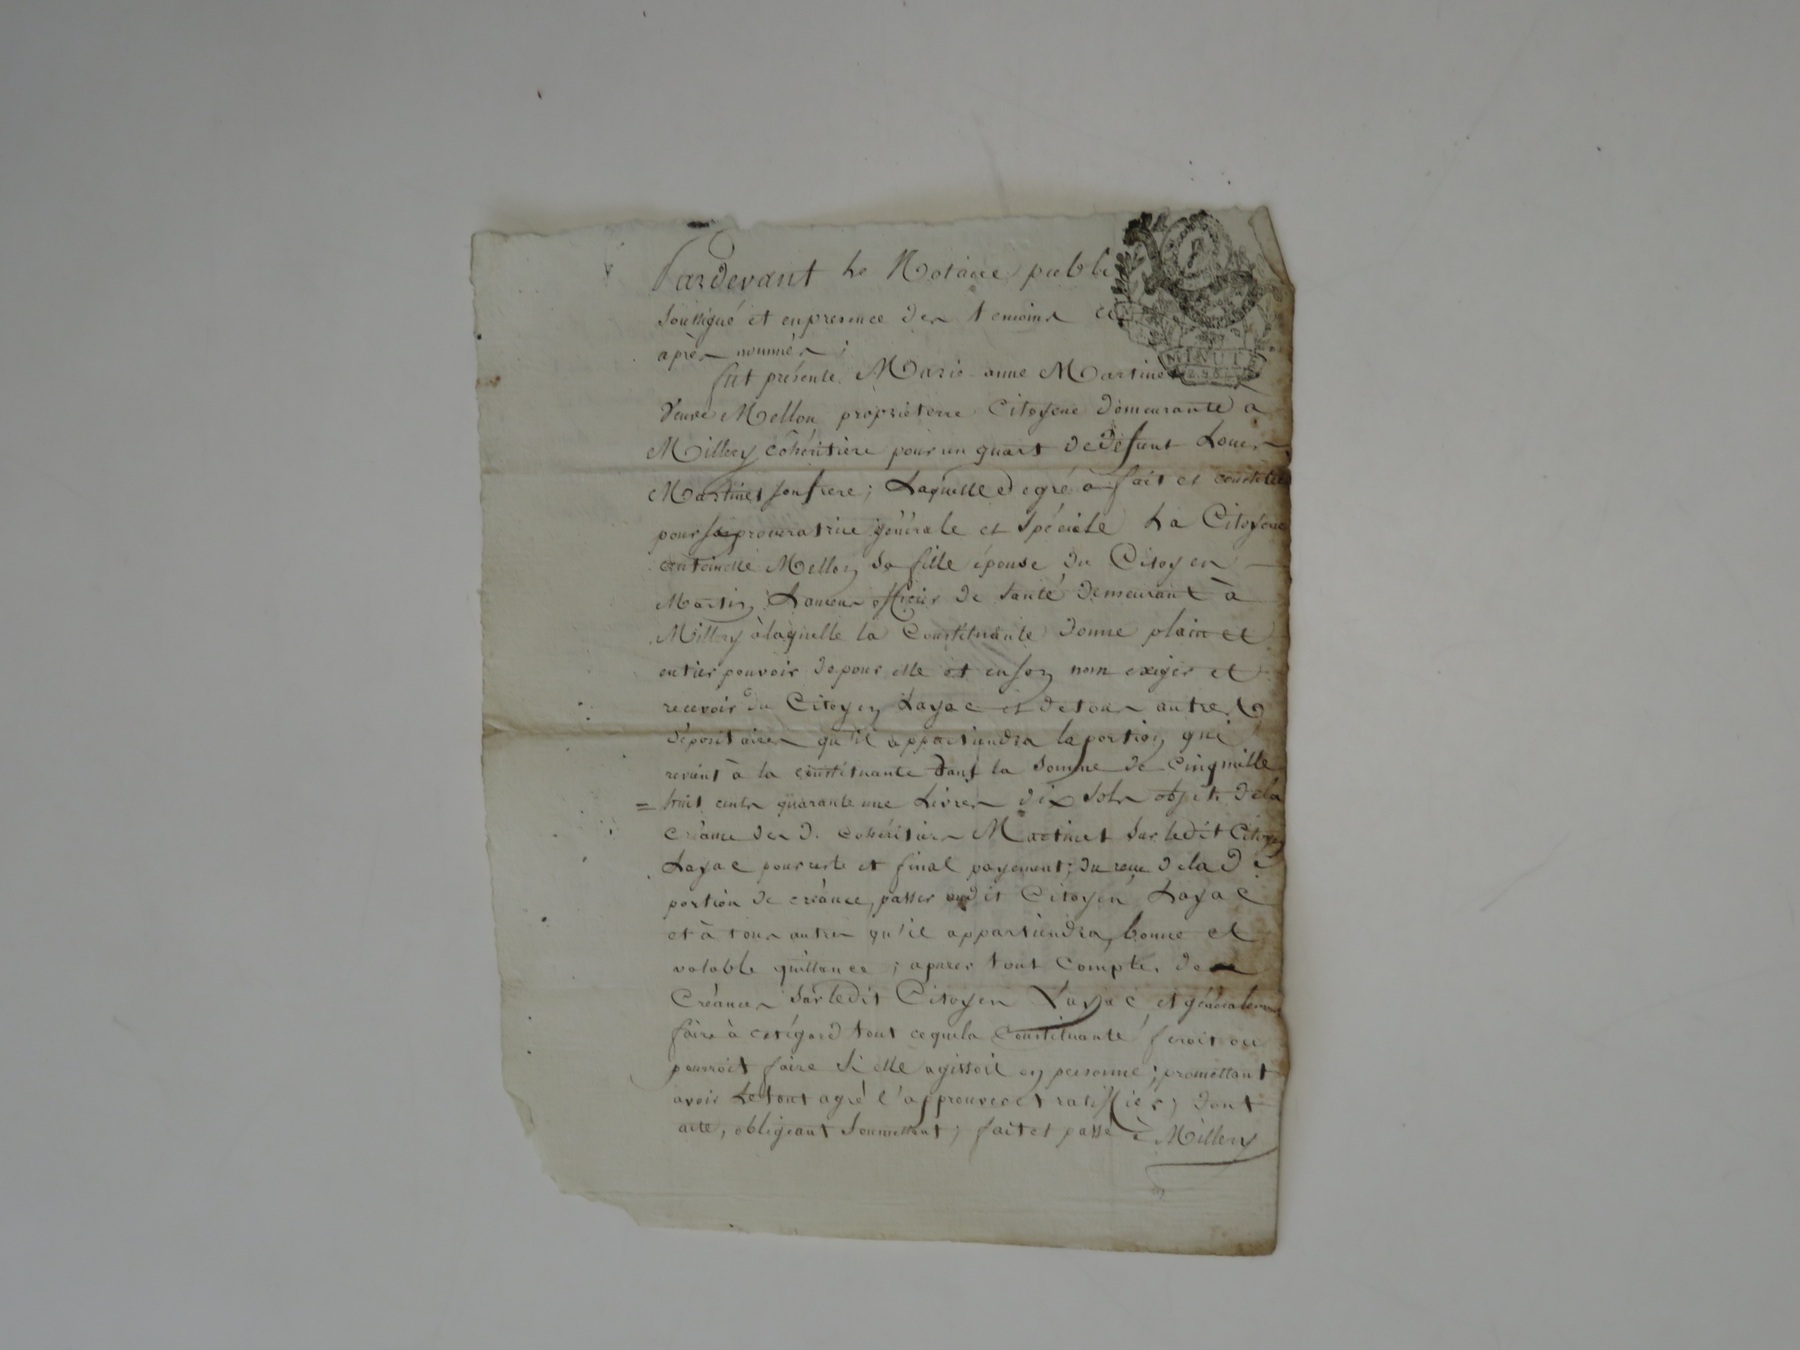 Pardevant Le Notaire publi
soussigné et en presence des temoins ci
après nommés ;
fut présente Marie anne Martinet
Veuve Mellon propriétere Citoyene demeurante à
Millery cohéritiere pour un quart de défunt Louis
Martinet son frere ; Laquelle de gré à fait et constitué
pour sa procuratrice générale et spéciale La Citoyene
antoinette Mellon sa fille épouse du Citoyen
Martin officier de santé demeurant à
Millery à laquelle la Constituante donne plain et
entier pouvoir de pour elle et en son nom exiger et
recevoir du Citoyen Layac et de tous autres
dépositaires qu'il appartiendra la portion qui
revient à la constituante dans la somme de Cinq mille
= huit cents quarante une Livres dix sols objet de la
créance des d. cohéritiers Martinet sur ledit Citoyen
Layac pour reste et final payement ; du reçu de la de
portion de créance, passer audit Citoyen Layac
et à tous autres qu'il appartiendra, bonne et
valable quittance ; apurer tout compte de
Créances sur ledit Citoyen Layac et généralement
faire à cet égard tout ce que la Constituante feroit ou
pourroit faire si elle agissoit en personne ; promettant
avoir Le tout agré l'approuver et ratiffier ; dont
acte, obligeant soumettant ; fait et passé à Millery
MINUT